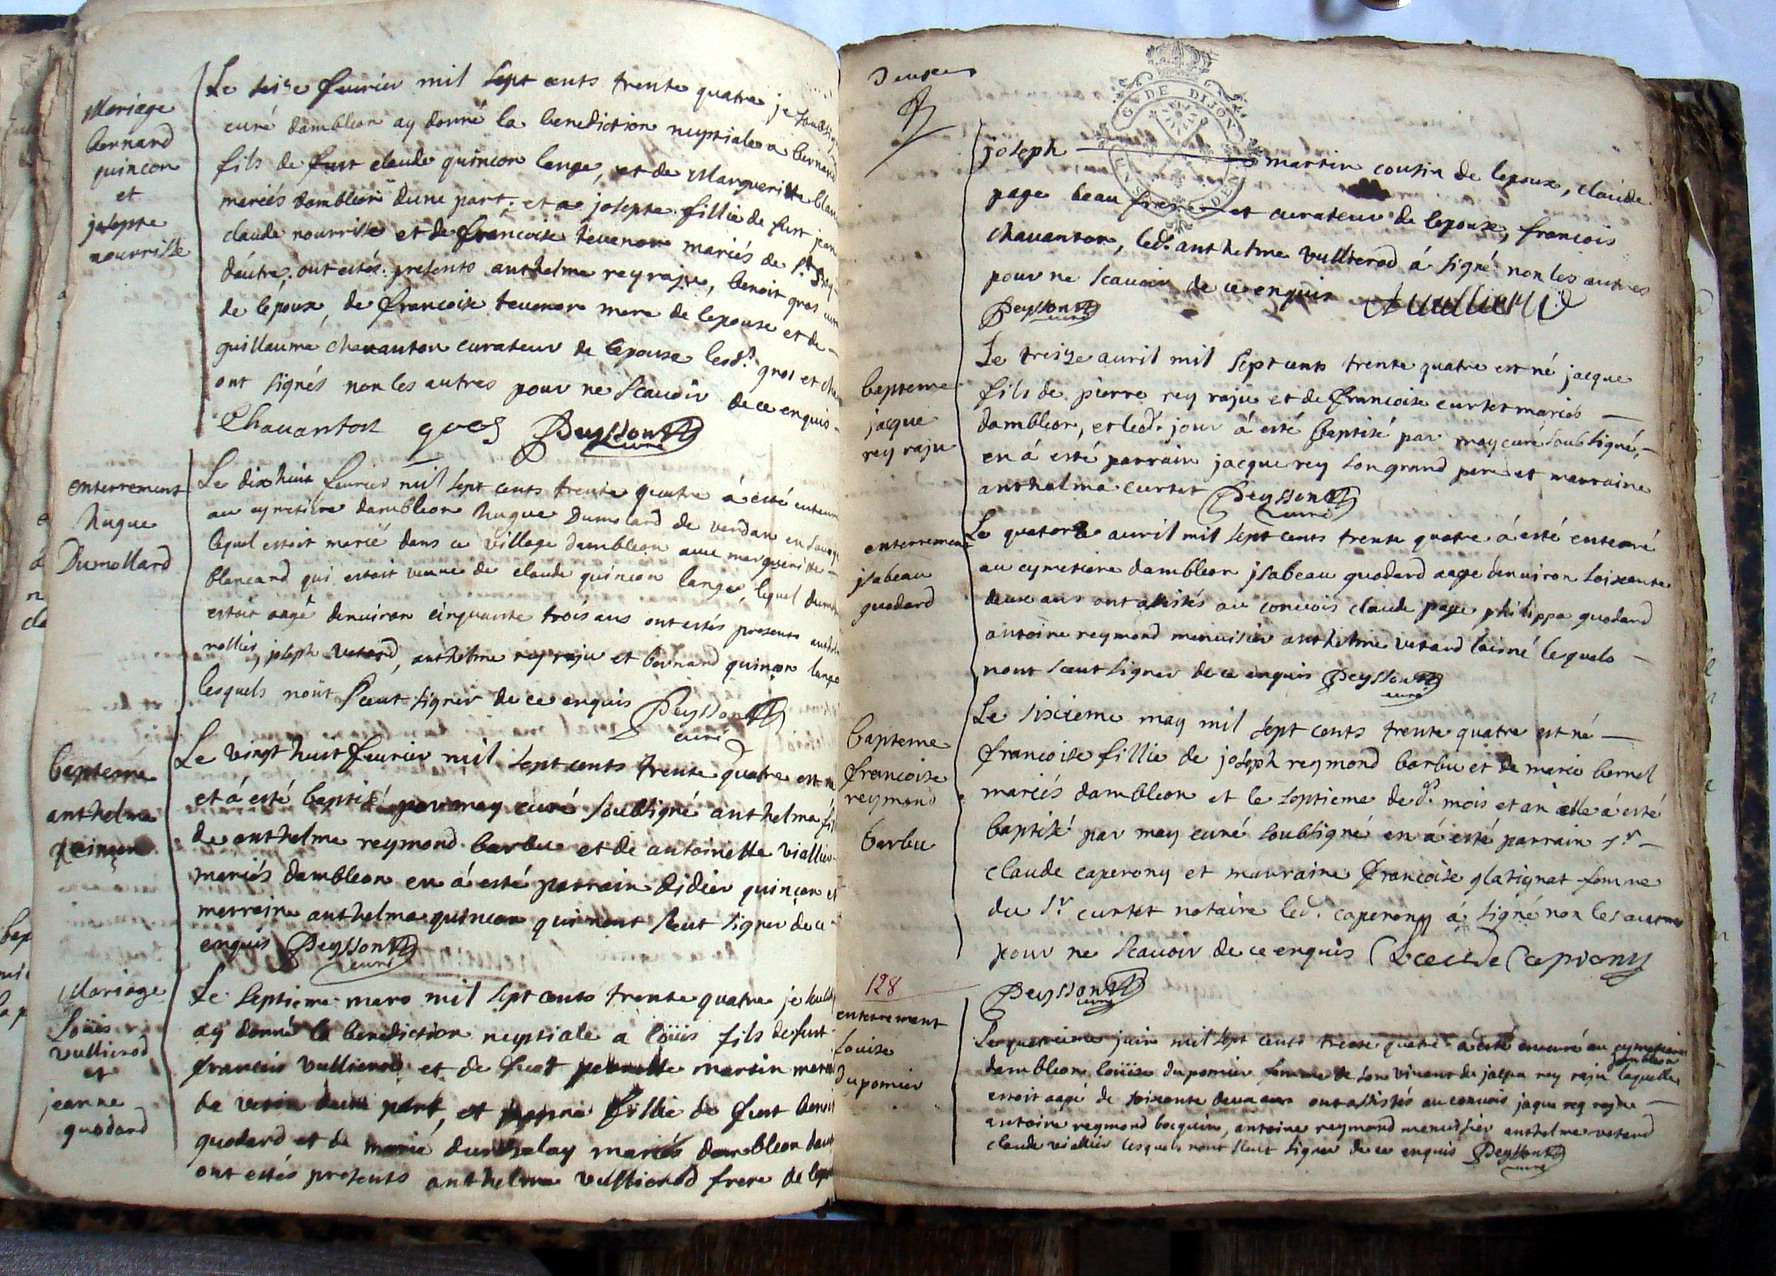 Mariage
bernard
quincon
et
josepte
nourrisse
Le seize fevrier mil sept cents trente quatre je soubsigné
curé dambleon ay donné la benediction nuptiale a bernard
fils de furt claude quincon lange, et de Marguerite blan
mariés dambleon dune part, et a josepte fillie de furt jean
claude nourrisse et de francoise tevenon mariés de st
dautre, ont estés presents anthelme rey raju, benoit gros
de lepoux, de francoise tevenon mere de lepouse et de
guillaume chavanton curateur de lepouse lesd. gros et cha
ont signés non les autres pour ne scavoir de ce enquis
Chavanton gros Peysson curé
enterrement
hugue
Dumollard
Le dix huit fevrier mil sept cents trente quatre á esté enterré
au cymetiere dambleon hugue Dumolard de verdan en savoye
lequel estoit marié dans ce village dambleon avec marguerite
blancard qui estoit veuve de claude quincon lange, lequel dumo
estoit aagé denviron cinquante trois ans ont estés presents
rollier, joseph vetard, anthelme rey raju et bernard quinçon lange
lesquels nont sceut signer de ce enquis Peysson
curé
bapteme
anthelma
Le vingt huit fevrier mil sept cents trente quatre est né
et á esté baptisé par moy curé soubsigné anthelma fil
de anthelme reymond barbu et de antoinette viallier
mariés dambleon en á esté parrain didier quinçon et
merraine anthelma quincon qui nont sceut signer de ce
enquis Peysson
curé
Mariage
Loüis
vullierod
et
jeanne
quodard
Le septieme mars mil sept cents trente quatre je soub
ay donné la benediction nuptiale a loüis fils de furt
francois vullierod et de furt martin
de dune part, et jeanne fillie de furt benoit
quodard et de marie mariés dambleon daut
ont estés presents anthelme vullierod frere de lepo
joseph martin cousin de lepoux, claude
page beau frere et curateur de lepouse, francois
chavanton, led. anthelme vullierod á signé non les autres
pour ne scavoir de ce enquis
Peysson
curé
bapteme
jacque
rey raju
Le treize avril mil sept cents trente quatre est né jacque
fils de pierre rey raju et de francoise curtet mariés
dambleon, et led. jour á esté baptisé par moy curé soubsigné,
en á esté parrain jacque rey son grand pere et marraine
anthelma curtet Peysson
curé
enterrement
jsabeau
quodard
Le quatorze avril mil sept cents trente quatre á esté enterré
au cymetiere dambleon jsabeau quodard aagé denviron soixante
deux ans ont assistés au convois claude page philippe quodard
antoine reymond menuisier anthelme vetard laisné lesquels
nont sceut signer de ce enquis Peysson
curé
bapteme
francoise
reymond
barbu
Le sixieme may mil sept cents trente quatre est né
francoise fillie de joseph reymond barbu et de marie bernel
mariés dambleon et le septieme de d. mois et an elle á esté
baptisé par moy curé soubsigné en á esté parrain sr
claude caperony et marraine francoise glatignat femme
du sr curtet notaire led. caperony á signé non les autres
pour ne scavoir de ce enquis Claude Caprony
Peysson
curé
128
enterrement
Louise
dupomier
Le quatrieme juin mil sept cents trente quatre á esté enterré au cymetiere
dambleon
dambleon loüise dupomier femme de son vivant de rey raju laquelle
estoit aagé de soixante deux ans ont assistés au convois jaque rey
antoine reymond bocquin, antoine reymond menuisier anthelme vetard
claude viallier lesquels nont sceut signer de ce enquis Peysson
curé
G. DE DIJON